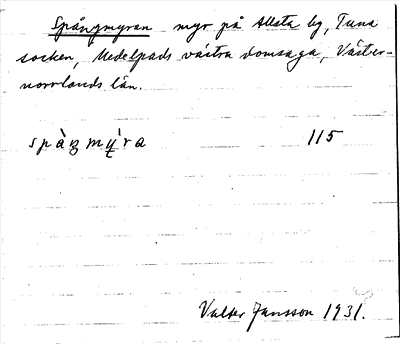 Spångmyran myr på Allsta by, Tuna
socken, Medelpads västra domsaga, Väster-
norrlands län.
spàŋmỳ̨ra 115
Valter Jansson 1931.